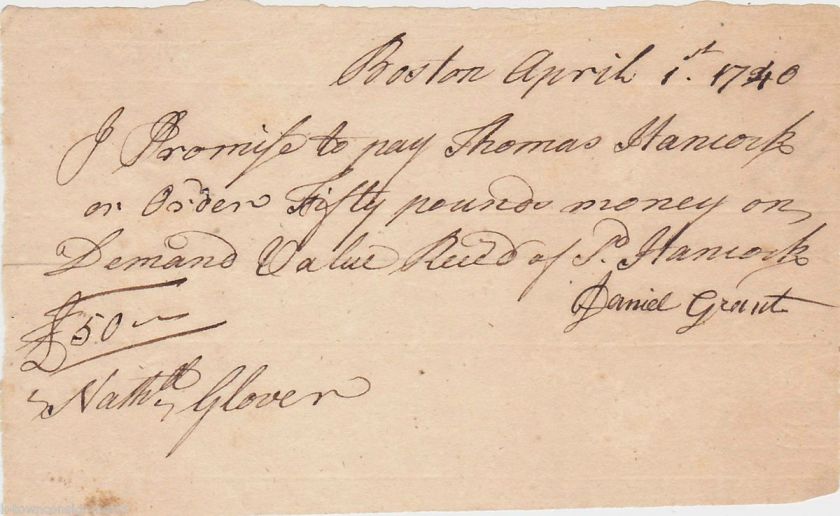 Boston April 1st. 1740
I Promise to pay Thomas Hancock
or Order Fifty pounds money on
Demand Value Rec'd of Sd. Hancock
Daniel Grant
£50
Nathll Glover